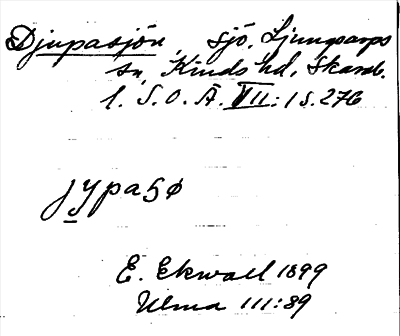 Djupasjön, sjö, Ljungsarps
sn, Kinds hd, Skarab.
l. S. O. Ä. VII:1 s. 276
jypasø
E. Ekwall 1899
Ulma 111:89